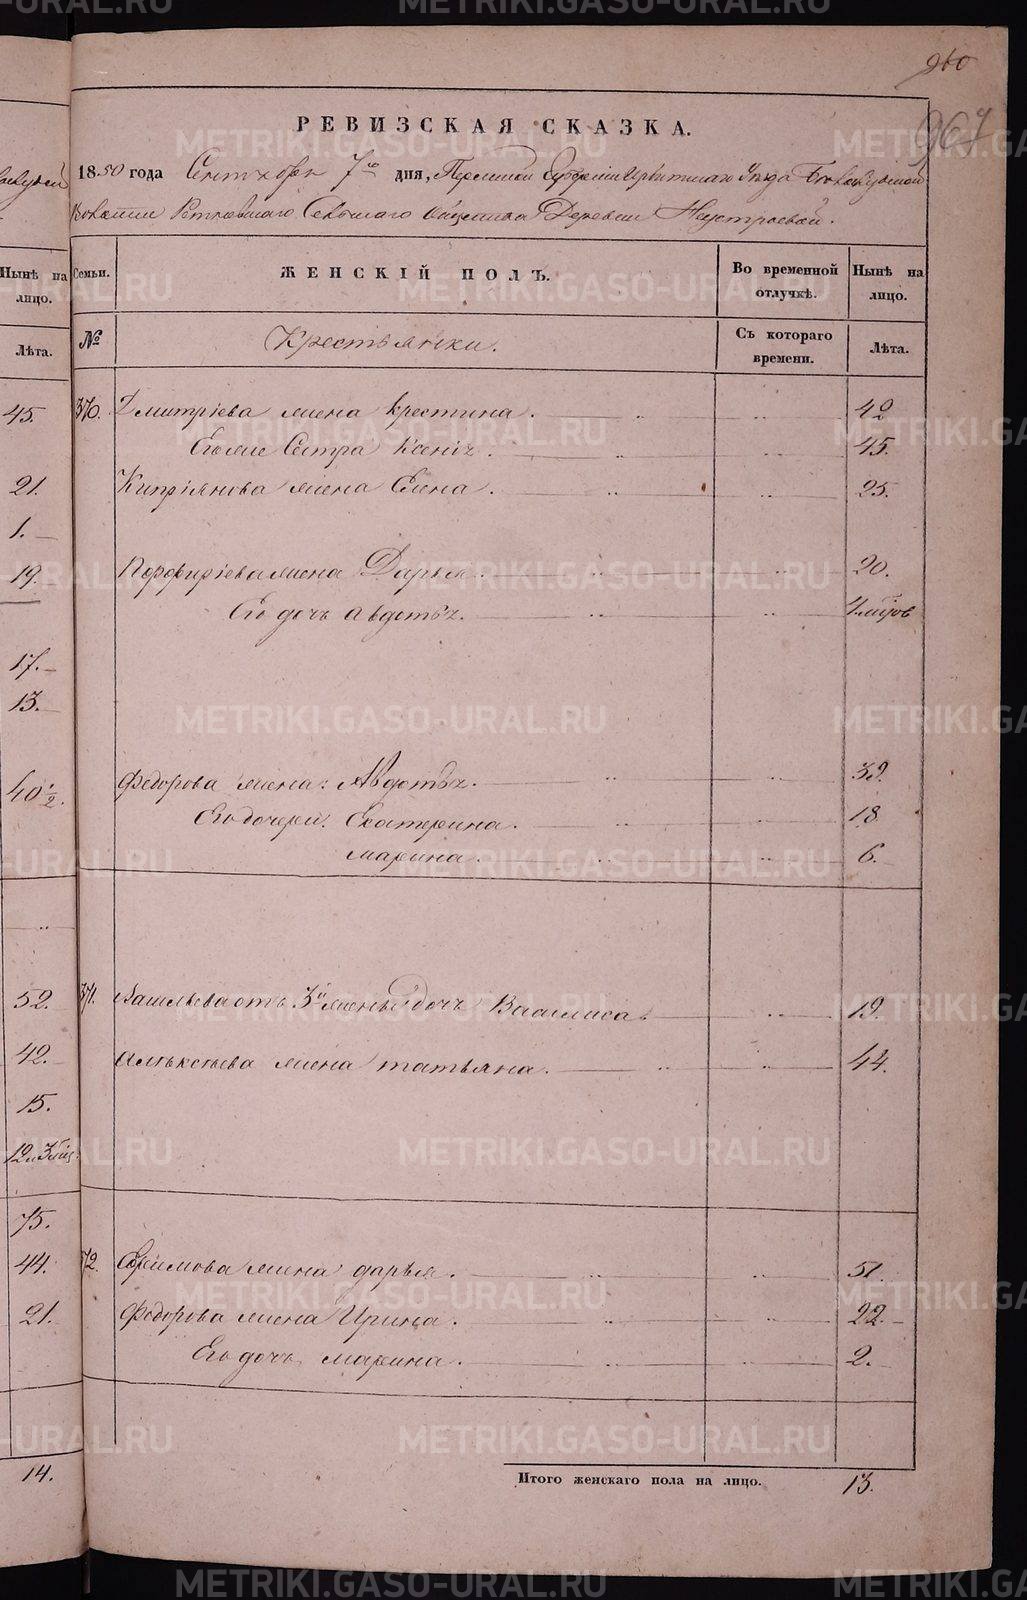 960
967
РЕВИЗСКАЯ СКАЗКА.
1850 года Сентября 7го дня, Пермской Губернии Ирбитскаго Уезда
Деревни
ЖЕНСКІЙ ПОЛЪ.
Семьи.
Во временной отлучкѣ.
Нынѣ на лицо.
№
Крестьянки.
Съ котораго времени.
Лѣта.
370. Дмитріева жена Крестина. 42
Его же Сестра Ксенія. 45.
Кипріянова жена Елена. 25.
Порфиріева жена Дарья. 20.
Его дочь Авдотья.
Федорова жена: Авдотья. 39.
Его дочери: Екатерина. 18.
Марина. 6.
371. Васильева отъ 3й жены дочь Василиса. 19.
Алексѣева жена Татьяна. 44.
72. Ефимова жена Дарья. 51.
Федорова жена Ирина. 22.
Его дочь Марина. 2.
Итого женскаго пола на лицо. 13.
Нынѣ на лицо.
Лѣта.
45.
21.
1.
19.
17.
13.
40 1/2.
52.
42.
15.
75.
44.
21.
14.
METRIKI.GASO-URAL.RU